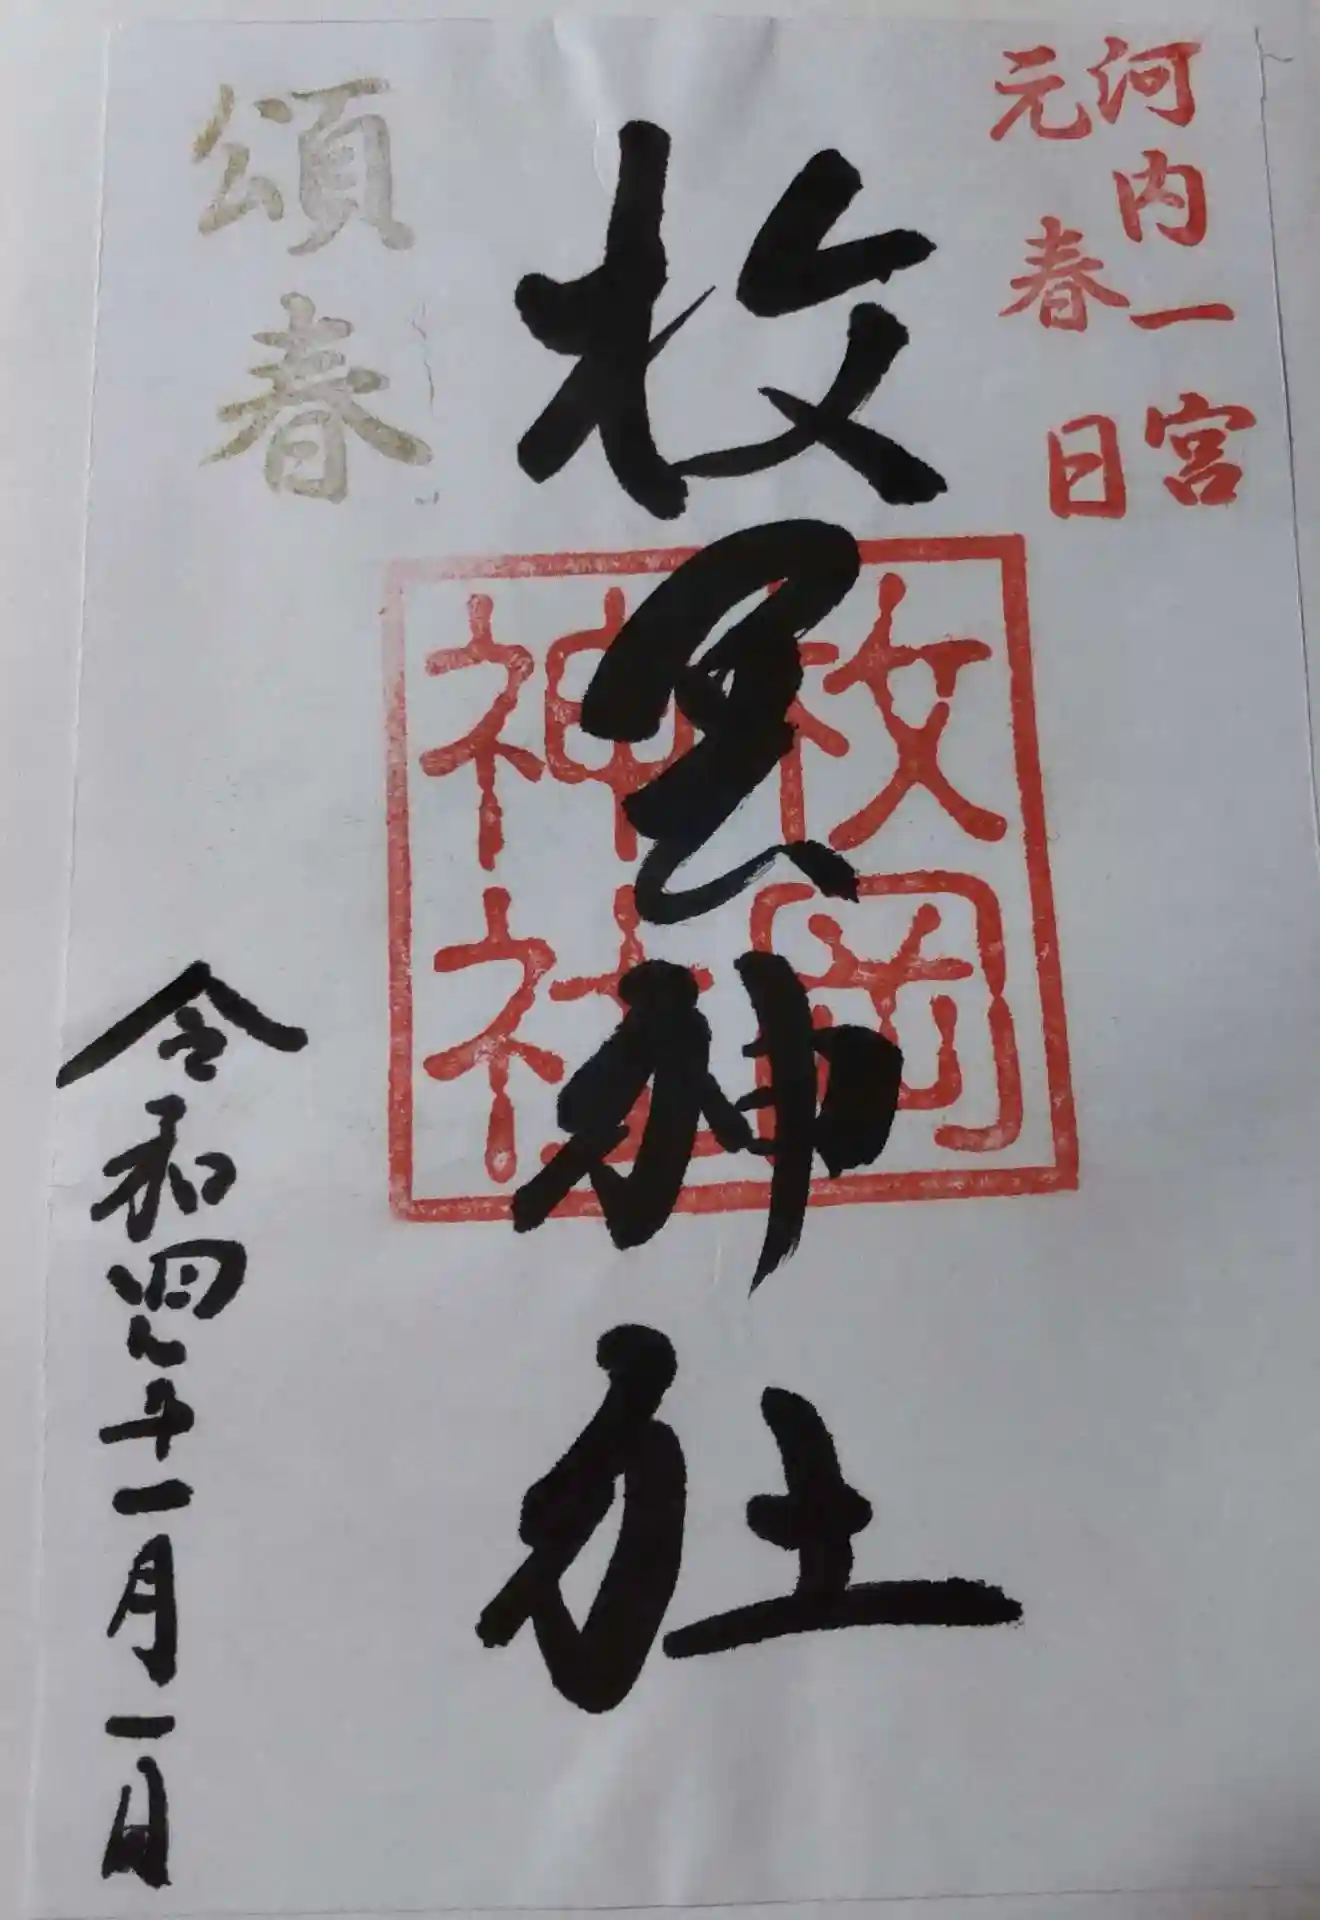 河内一宮
元春日
枚岡神社
枚岡
神社
頌春
令和四年一月一日